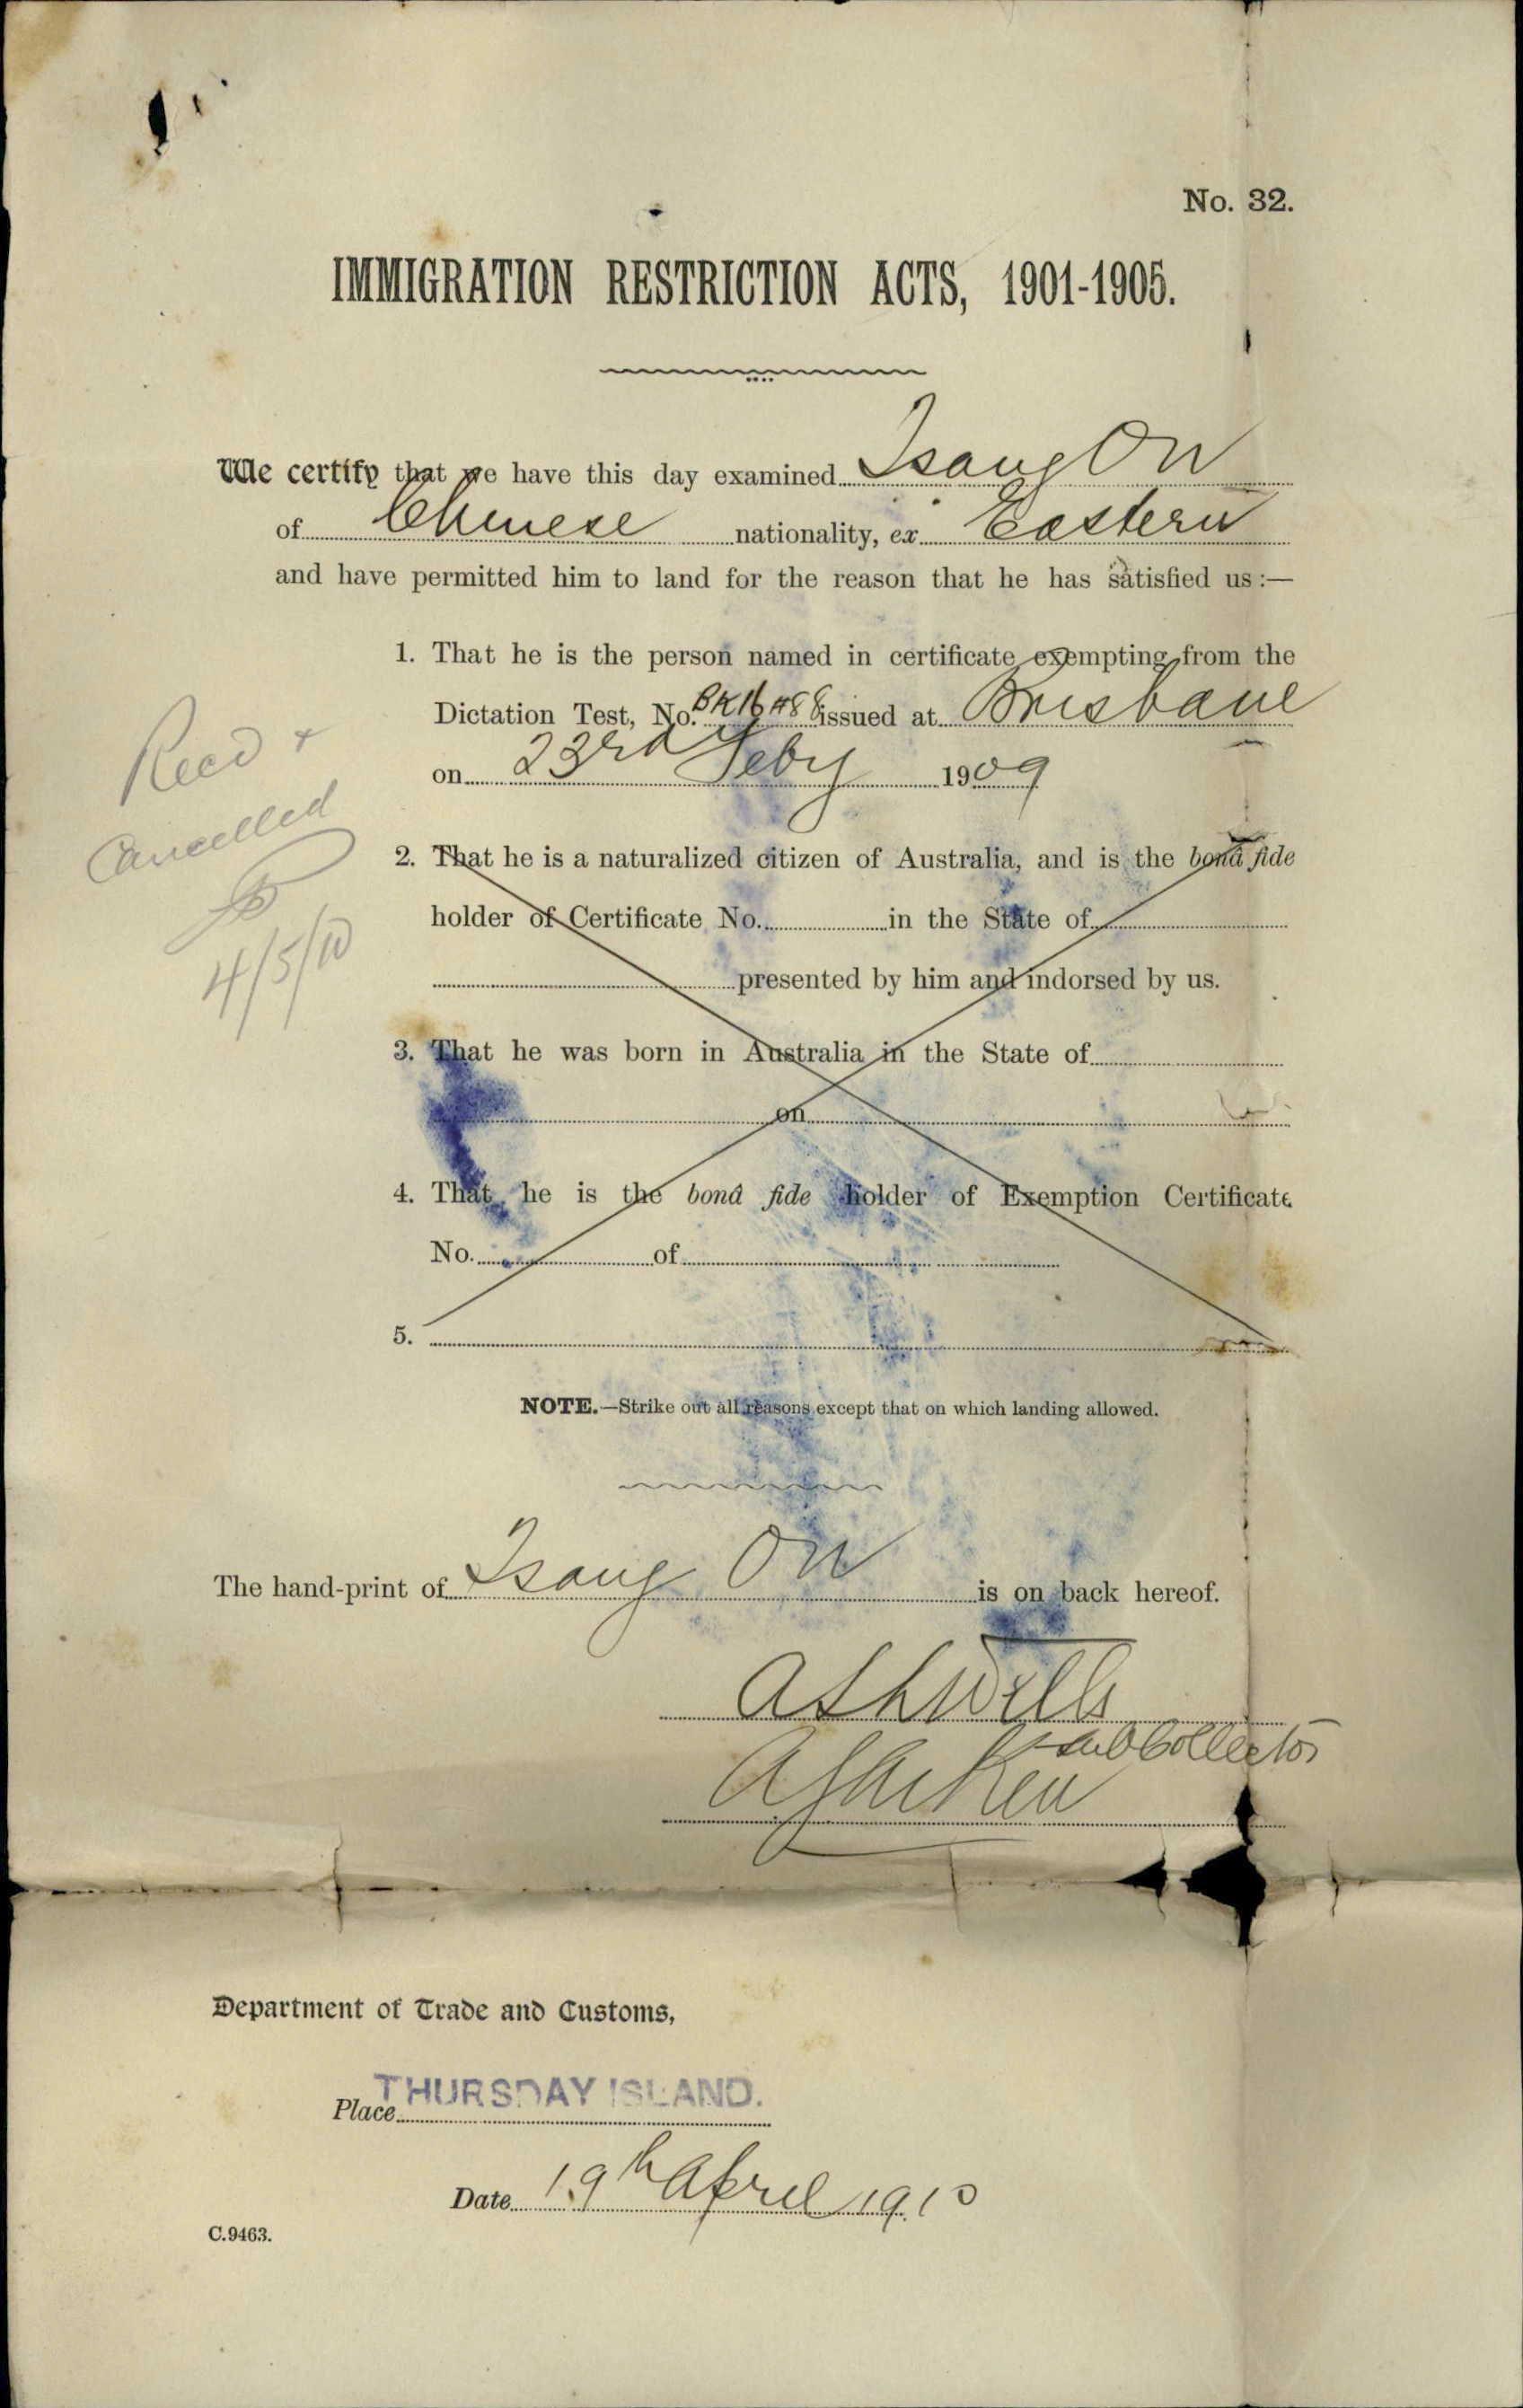 No. 32.
IMMIGRATION RESTRICTION ACTS, 1901-1905.
We certify that we have this day examined Tsang On
of Chinese nationality, ex Eastern
and have permitted him to land for the reason that he has satisfied us :—
1. That he is the person named in certificate exempting from the
Dictation Test, No. issued at Brisbane
on 23rd Feby 1909
Recd +
Cancelled
4/5/10
2. That he is a naturalized citizen of Australia, and is the bonâ fide
holder of Certificate No. in the State of
presented by him and indorsed by us.
3. That he was born in Australia in the State of
on
4. That he is the bonâ fide holder of Exemption Certificate
No. of
5.
NOTE.—Strike out all reasons except that on which landing allowed.
The hand-print of Tsang On is on back hereof.
Sub Collector
Department of Trade and Customs,
Place THURSDAY ISLAND.
Date 19th April 1910
C.9463.